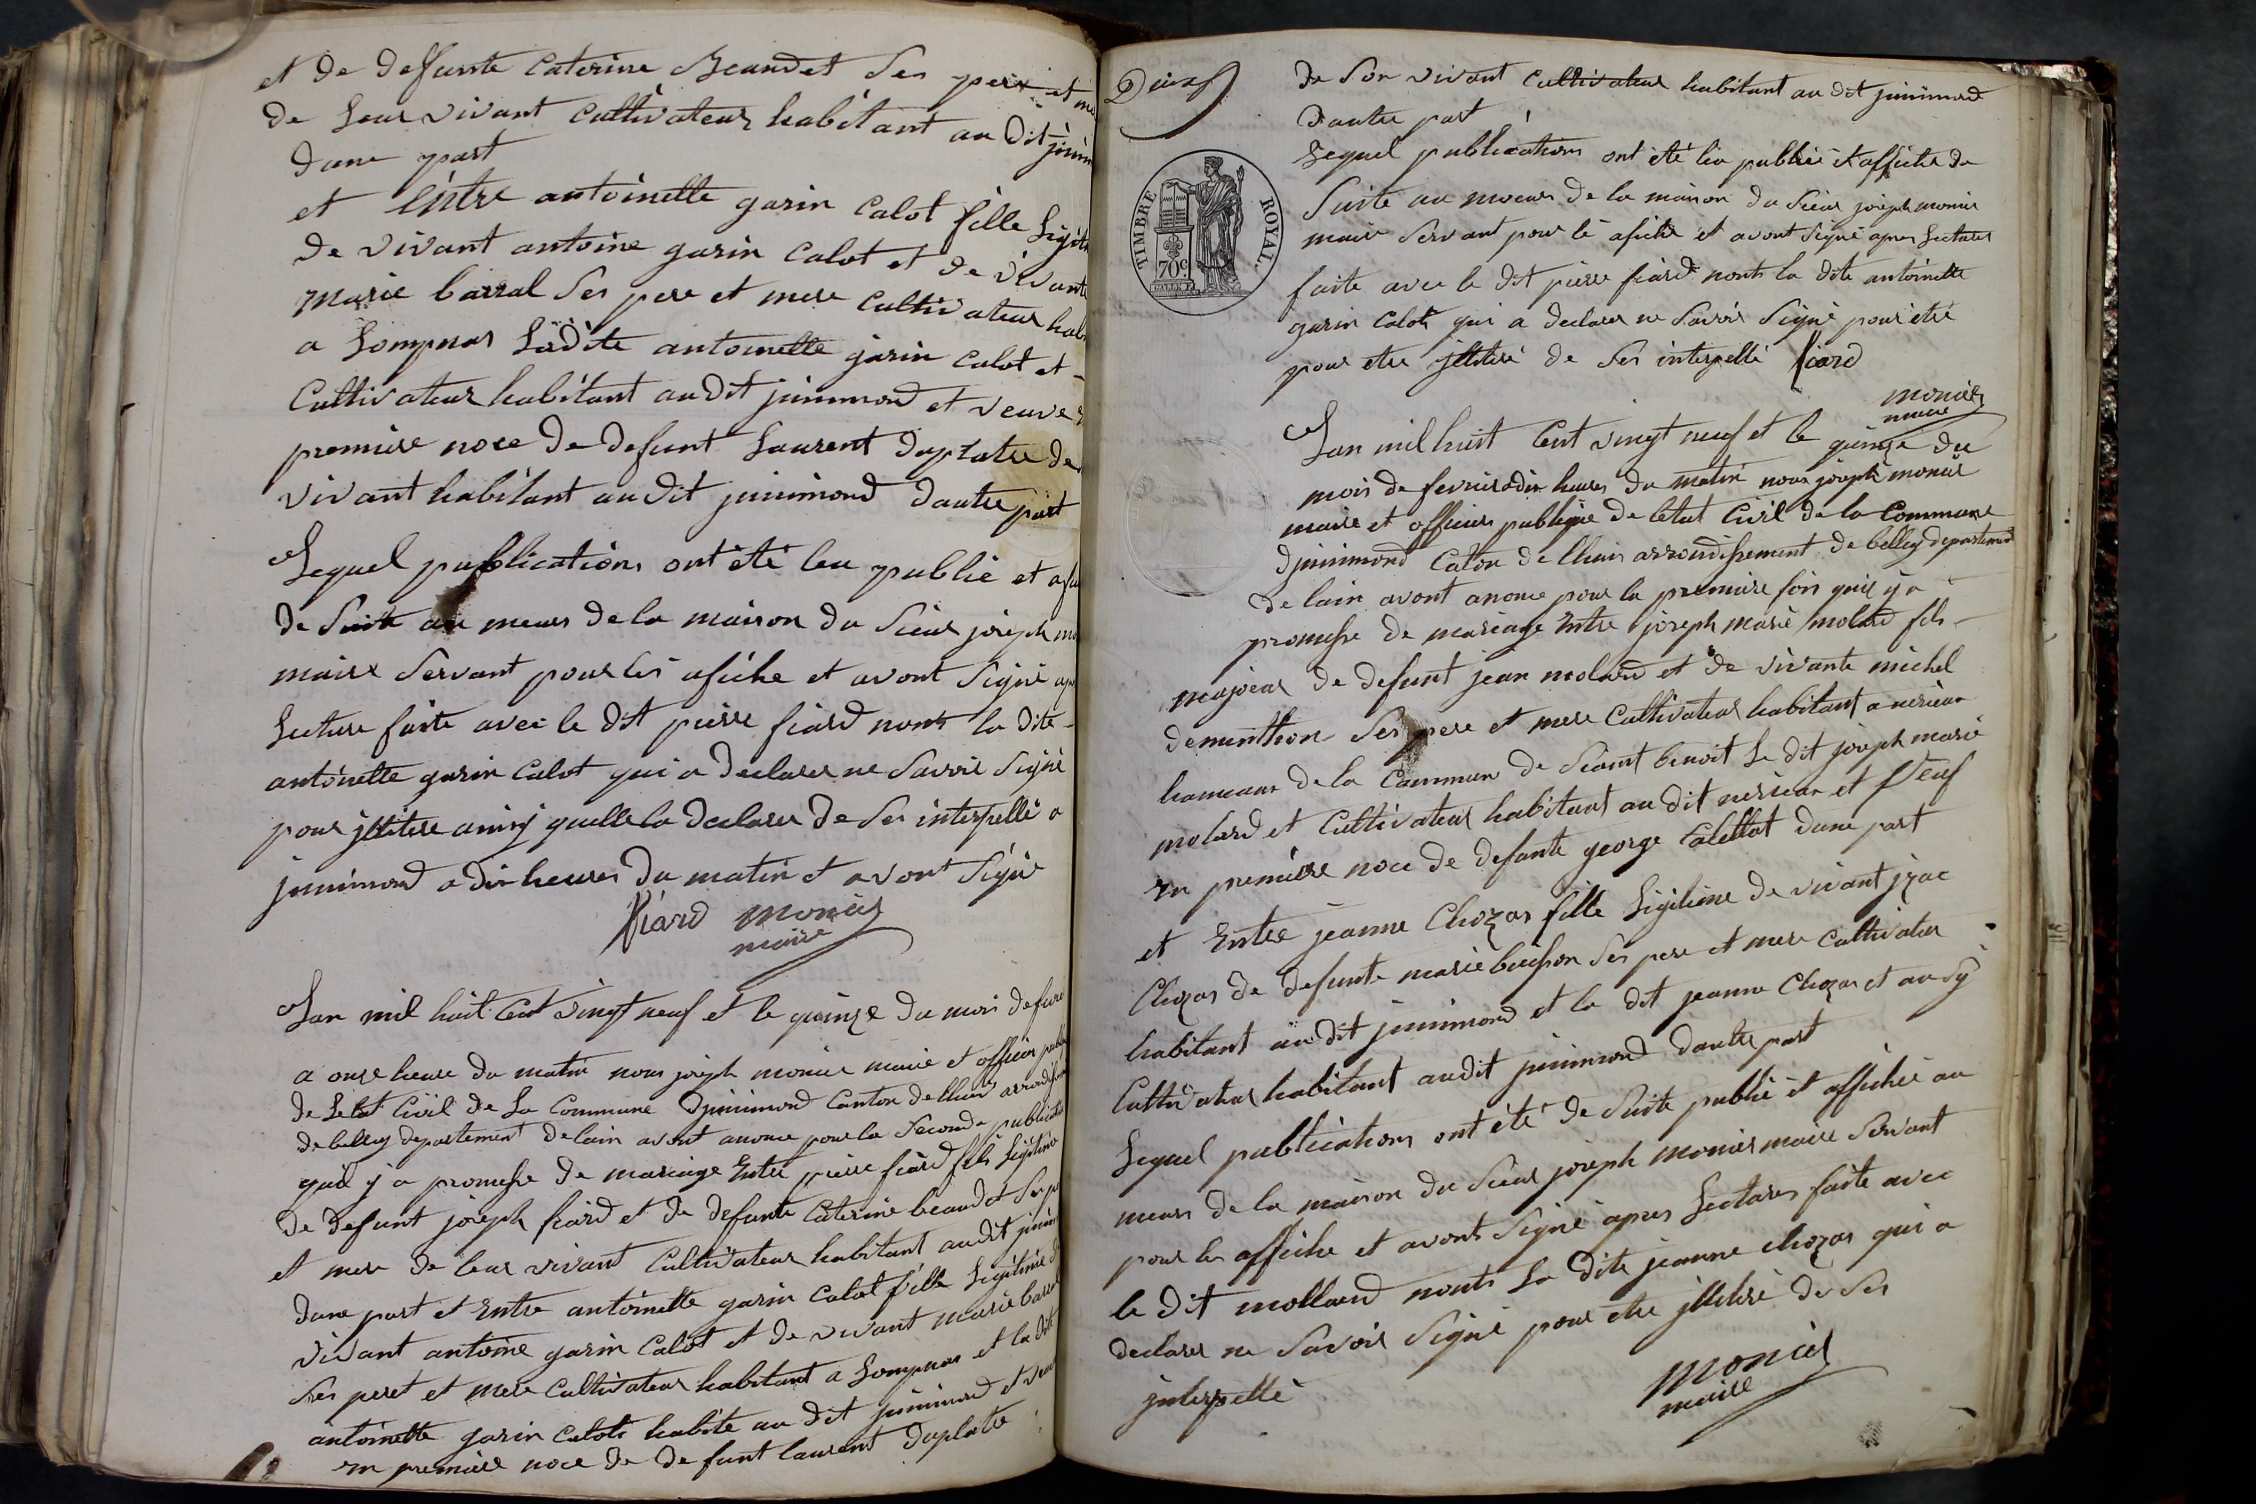 et de defunte Caterine Beaudet Ses pere et
de Leur vivant Cultivateur habitant au Dit
dune part
et Entre antoinette garin Calot fille
de vivant antoine garin Calot et de vivante
Marie barral Ses pere et mere Cultivateur
a Lompnas Ladite antoinette garin Calot et
Cultivateur habitant audit jnnimond et veuve
premiere noce de defunt Laurent duplatre de
vivant habitant audit jnnimond dautre part
Lequel publications ont été leu publié et
de Suite au meurs de la maison du Sieur joseph
maire Servant pour les afiche et avont Signé
Lecture faite avec le dit pierre fiard nonts la dite
antoinette garin Calot qui a declarer ne Savoir Signé
pour jllitere ainsy quelle la declarer de Ses interpellé a
jnnimond a dix heures du matin et avont Signé
fiard monier
maire
Lan mil huit Cent vingt neuf et le quinze du mois de
a onze heure du matin nous joseph monier maire et officier
de Letat Civil de La Commune djnnimond Canton de lhuis
de belley departement de lain avont anonce pour la Seconde
quil y a promesse de mariage Entre pierre fiard fils Legitime
de defunt joseph fiard et de defunte Caterine beaudet
et mere de leur vivant Cultivateur habitant audit
dune part et Entre antoinette garin Calot fille Legitime
vivant antoine garin Calot et de vivant Marie
Ses peret et mere Cultivateur habitant a Lompnas et la
antoinette garin Calots habite au dit jnnimond et
en premiere noce de defunt laurent Duplatre
de Son vivant Cultivateur habitant au dit jnnimond
dautre part
Lequel publications ont été leu publié et affiche de
Suite au moeurs de la maison du Sieur joseph monier
maire Servant pour lé afiche et avont Signé apres Lectures
faite avec le dit pierre fiard nonts la dite antoinette
garin Calots qui a declarer ne Savoir Signé pour etré
pour etre jlliteré de Ses interpellé fiard
monier
maire
TIMBRE ROYAL
70c.
Lan mil huit Cent vingt neuf et le quinze du
mois de fevrier a dix heures du matin nous joseph monier
maire et officier publique de letat Civil de la Commune
djnnimond Caton de lhuis arrondissement de belley departement
de lain avont anonce pour la premiere fois quil y a
promesse de mariage Entre joseph marie molard fils
majeur de defunt jean molard et de vivante michel
dementhon Ses pere et mere Cultivateur habitant a
hameaur de la Commune de Seaint benoit Le dit joseph marie
molard et Cultivateur habitant au dit et Veuf
en premiere noce de defunte george Calettot dune part
et Entre jeanne Chozas fille Ligitime de vivant jzac
Chozas de defunte marie buisson Ses pere et mere Cultivateur
habitant audit jnnimond et la dit jeanne Chozas et ausy
Cultivateur habitant audit jnnimond dautre part
Lequel publications ont été de Suite publié et affichée au
meurs de la maison du Sieur joseph monier maire Servant
pour les affiche et avonts Signé apres Lectures faite avec
le dit mollard nonts La dite jeanne chozas qui a
declarer ne Savoir Signé pour etre jlliteré de Ses
jnterpellé
monier
maire